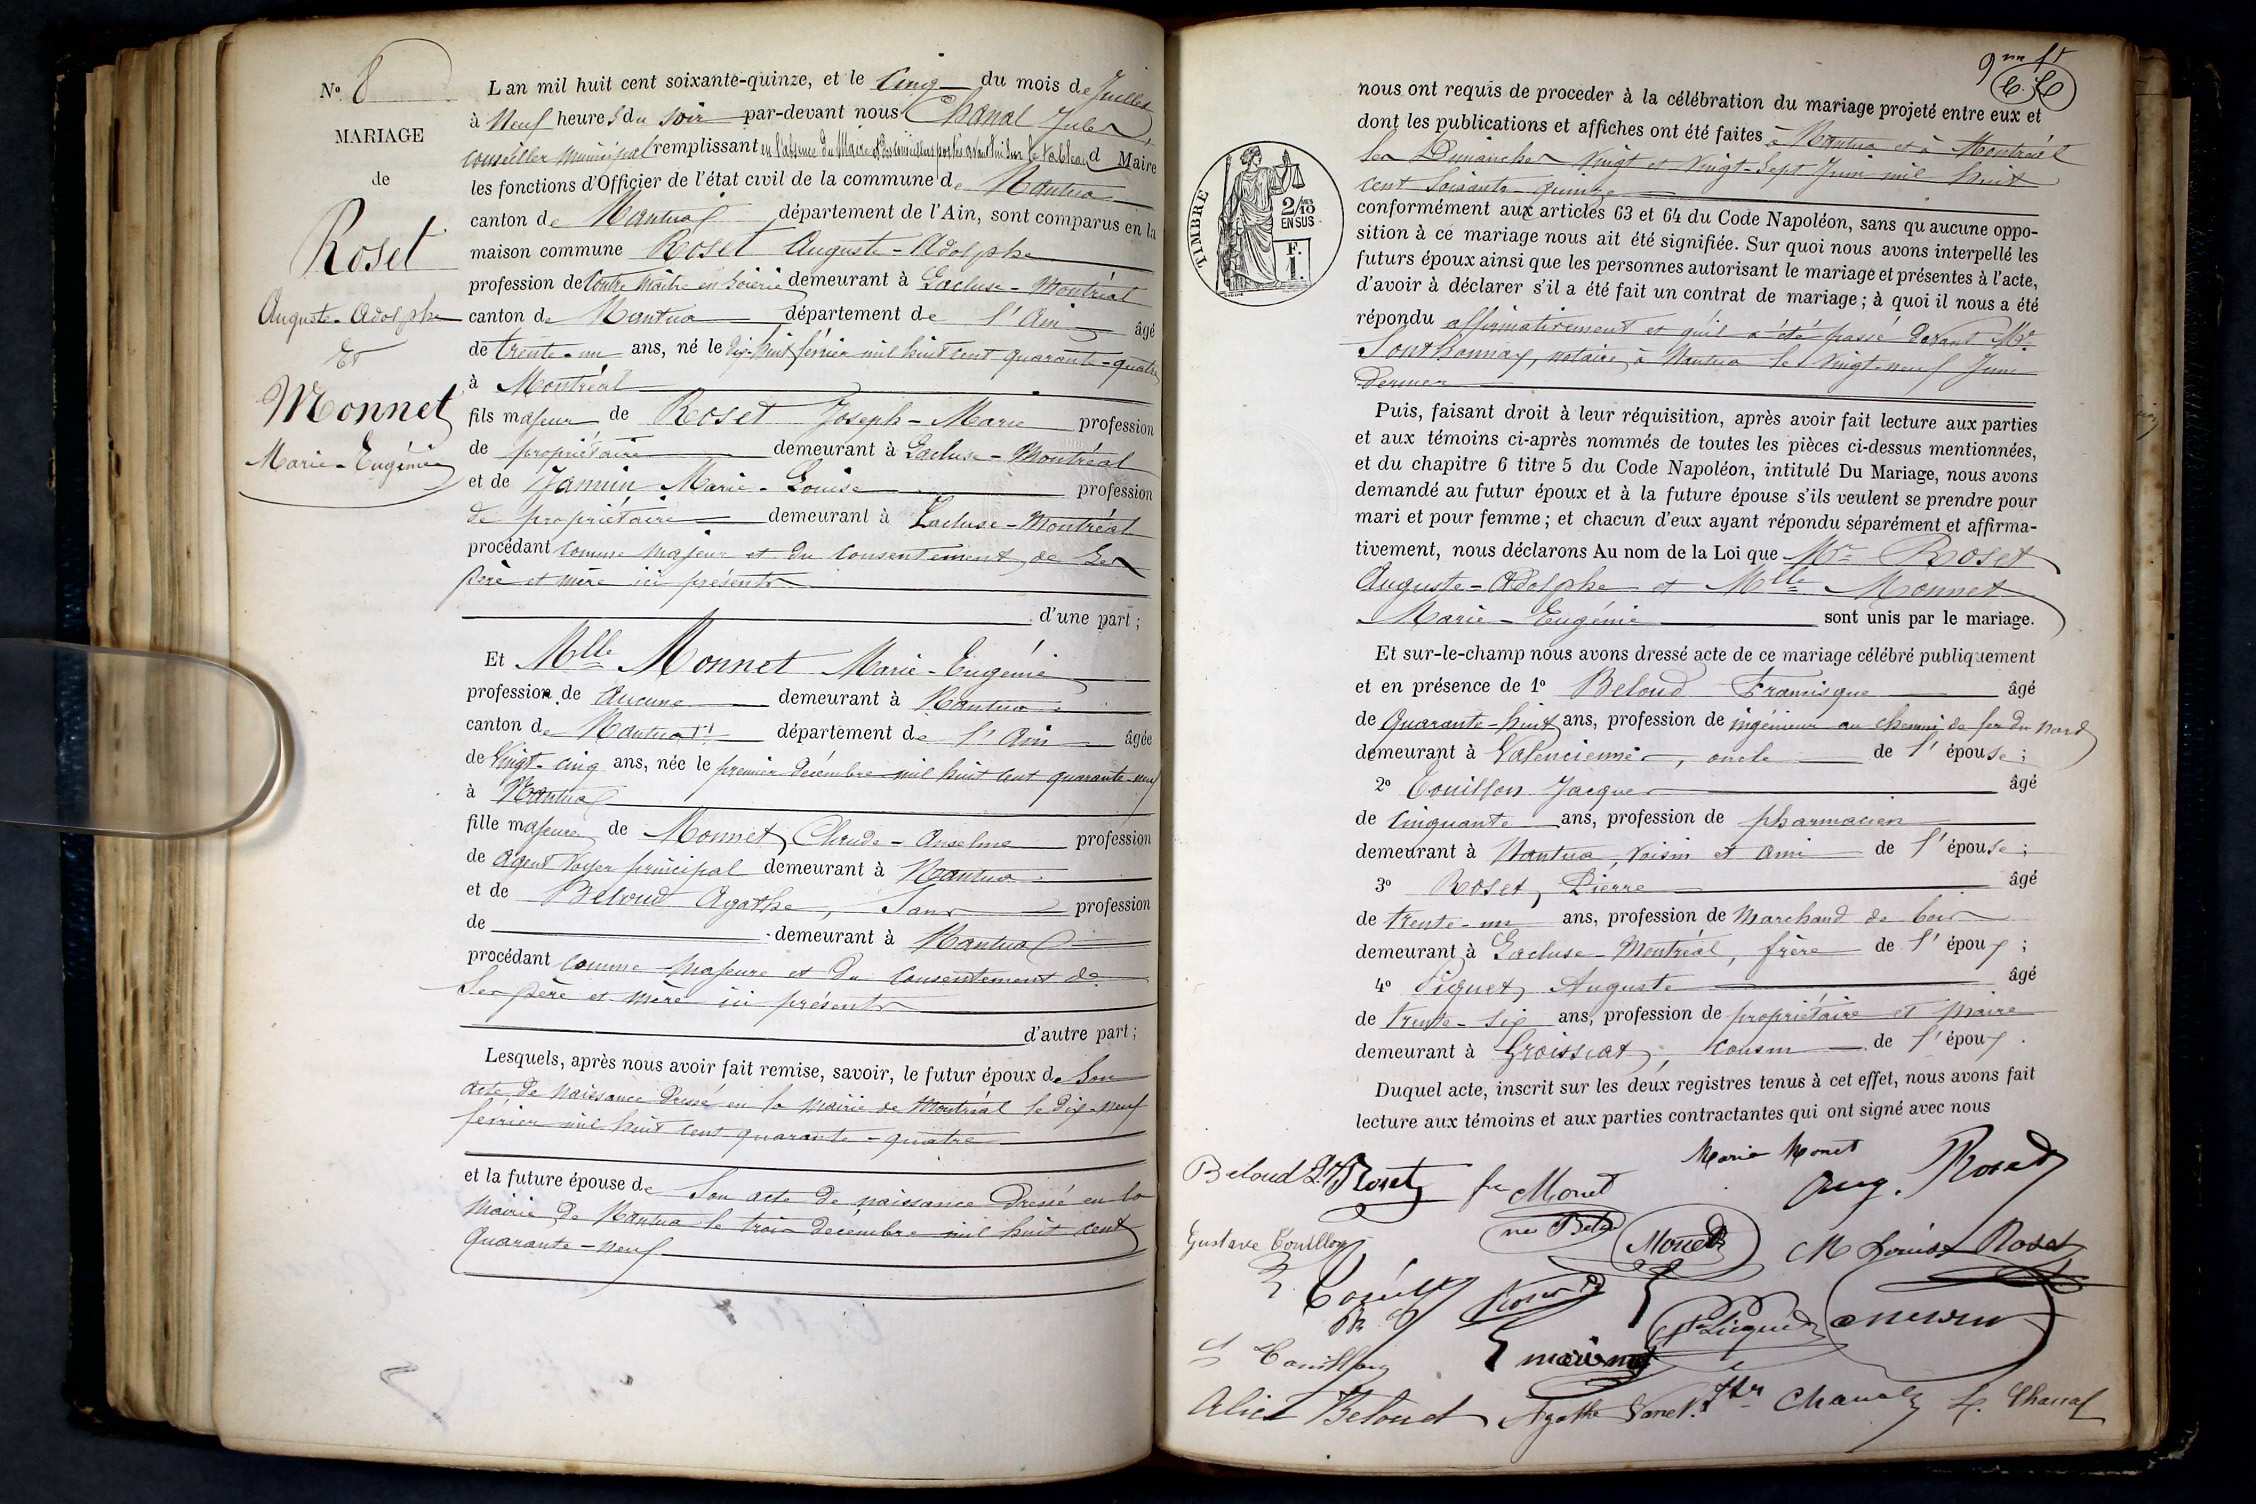 N° 8
MARIAGE
de
Roset
Auguste-Adolphe
Et
Monnet
Marie-Eugénie
L an mil huit cent soixante-quinze, et le Cinq du mois de Juillet
à Neuf heures du Soir par-devant nous Chanal Jules,
conseiller municipal remplissant en l'absence du Maire et des conseillers portés avant lui sur le tableau d Maire
les fonctions d'Officier de l'état civil de la commune de Nantua
canton de Nantua département de l'Ain, sont comparus en la
maison commune Roset Auguste-Adolphe
profession de Contre Maître en Soierie demeurant à Lacluse-Montréal
canton de Nantua département de l'Ain âgé
de trente-un ans, né le dix-huit février mil huit cent quarante-quatre
à Montréal
fils majeur de Roset Joseph-Marie profession
de propriétaire demeurant à Lacluse-Montréal
et de Jamin Marie-Louise profession
de propriétaire demeurant à Lacluse-Montréal
procédant comme majeur et du consentement de Ses
père et mère ici présents
d'une part ;
Et Mlle Monnet Marie-Eugénie
profession de Aucune demeurant à Nantua
canton de Nantua département de l'Ain âgée
de Vingt-cinq ans, née le premier décembre mil huit cent quarante-neuf
à Nantua
fille majeure de Monnet Claude-Anselme profession
de agent Voyer principal demeurant à Nantua
et de Beloud Agathe, Sans profession
de demeurant à Nantua
procédant comme majeure et du consentement de
Ses père et mère ici présents
d'autre part ;
Lesquels, après nous avoir fait remise, savoir, le futur époux de Son
acte de naissance dressé en la mairie de Montréal le dix-neuf
février mil huit cent quarante-quatre
et la future épouse de Son acte de naissance dressé en la
mairie de Nantua le trois décembre mil huit cent
quarante-neuf
9me ft
nous ont requis de proceder à la célébration du mariage projeté entre eux et
dont les publications et affiches ont été faites à Nantua et à Montréal
les Dimanches Vingt et Vingt-Sept Juin mil huit
cent Soixante-quinze
conformément aux articles 63 et 64 du Code Napoléon, sans qu aucune oppo-
sition à ce mariage nous ait été signifiée. Sur quoi nous avons interpellé les
futurs époux ainsi que les personnes autorisant le mariage et présentes à l'acte,
d'avoir à déclarer s'il a été fait un contrat de mariage ; à quoi il nous a été
répondu affirmativement et qu'il a été passé devant Me
Sonthonnax, notaire à Nantua le Vingt-neuf Juin
dernier
TIMBRE
2/10
EN SUS
F.
1.
Puis, faisant droit à leur réquisition, après avoir fait lecture aux parties
et aux témoins ci-après nommés de toutes les pièces ci-dessus mentionnées,
et du chapitre 6 titre 5 du Code Napoléon, intitulé Du Mariage, nous avons
demandé au futur époux et à la future épouse s'ils veulent se prendre pour
mari et pour femme ; et chacun d'eux ayant répondu séparément et affirma-
tivement, nous déclarons Au nom de la Loi que Mr Roset
Auguste-Adolphe et Mlle Monnet
Marie-Eugénie sont unis par le mariage.
Et sur-le-champ nous avons dressé acte de ce mariage célébré publiquement
et en présence de 1° Beloud Francisque âgé
de Quarante-huit ans, profession de ingénieur au chemin de fer du Nord
demeurant à Valenciennes, oncle de l'épouse ;
2° Touillon Jacques âgé
de cinquante ans, profession de pharmacien
demeurant à Nantua, voisin et ami de l'épouse ;
3° Roset Pierre âgé
de trente-un ans, profession de Marchand de bois
demeurant à Lacluse-Montréal, frère de l'époux ;
4° Piquet Auguste âgé
de trente-six ans, profession de propriétaire et Maire
demeurant à Groissiat, cousin de l'époux.
Duquel acte, inscrit sur les deux registres tenus à cet effet, nous avons fait
lecture aux témoins et aux parties contractantes qui ont signé avec nous
Marie Monet
Beloud Roset fe Monet Aug. Roset
Gustave Touillon née Beloud Monet M Louise Roset
Alice Beloud Agathe Chanal L. Chanal